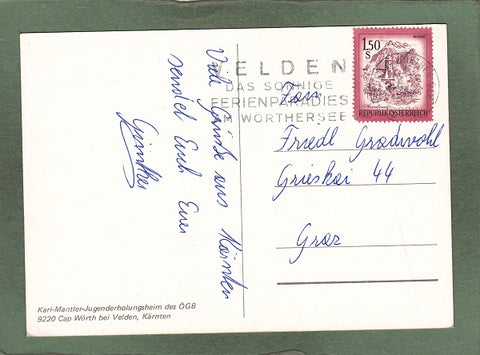 Viele Grüße aus Kärnten
sendet Euch Euer
Günther
VELDEN
DAS SONNIGE
FERIENPARADIES
AM WÖRTHERSEE
1.50
S
REPUBLIK ÖSTERREICH
Fam
Friedl Gradwohl
Grieskai 44
Graz
Karl-Mantler-Jugenderholungsheim des ÖGB
9220 Cap Wörth bei Velden, Kärnten